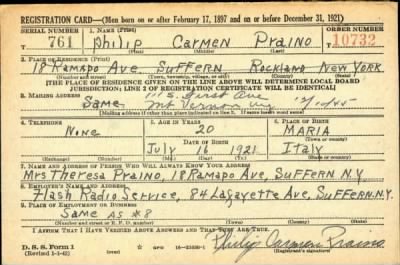 REGISTRATION CARD—(Men born on or after February 17, 1897 and on or before December 31, 1921)
SERIAL NUMBER 1. NAME (Print) ORDER NUMBER
761 Philip Carmen Praino 10732
(First) (Middle) (Last)
2. PLACE OF RESIDENCE (Print)
18 Ramapo Ave. Suffern Rockland New York
(Number and street) (Town, township, village, or city) (County) (State)
[THE PLACE OF RESIDENCE GIVEN ON THE LINE ABOVE WILL DETERMINE LOCAL BOARD
JURISDICTION; LINE 2 OF REGISTRATION CERTIFICATE WILL BE IDENTICAL]
3. MAILING ADDRESS 111 S. First Ave
Same Mt Vernon
4. TELEPHONE 5. AGE IN YEARS 6. PLACE OF BIRTH
None 20 MARIA
DATE OF BIRTH (Town or county)
July 16 1921 Italy
(Exchange) (Number) (Mo.) (Day) (Yr.) (State or country)
7. NAME AND ADDRESS OF PERSON WHO WILL ALWAYS KNOW YOUR ADDRESS
Mrs Theresa Praino, 18 Ramapo Ave, Suffern N.Y.
8. EMPLOYER'S NAME AND ADDRESS
Flash Radio Service, 84 Lafayette Ave, Suffern. N.Y.
9. PLACE OF EMPLOYMENT OR BUSINESS
Same as #8
(Number and street or R. F. D. number) (Town) (County) (State)
I AFFIRM THAT I HAVE VERIFIED ABOVE ANSWERS AND THAT THEY ARE TRUE.
D. S. S. Form 1
(Revised 1-1-42) GPO Philip Carmen Praino
(Registrant's signature)